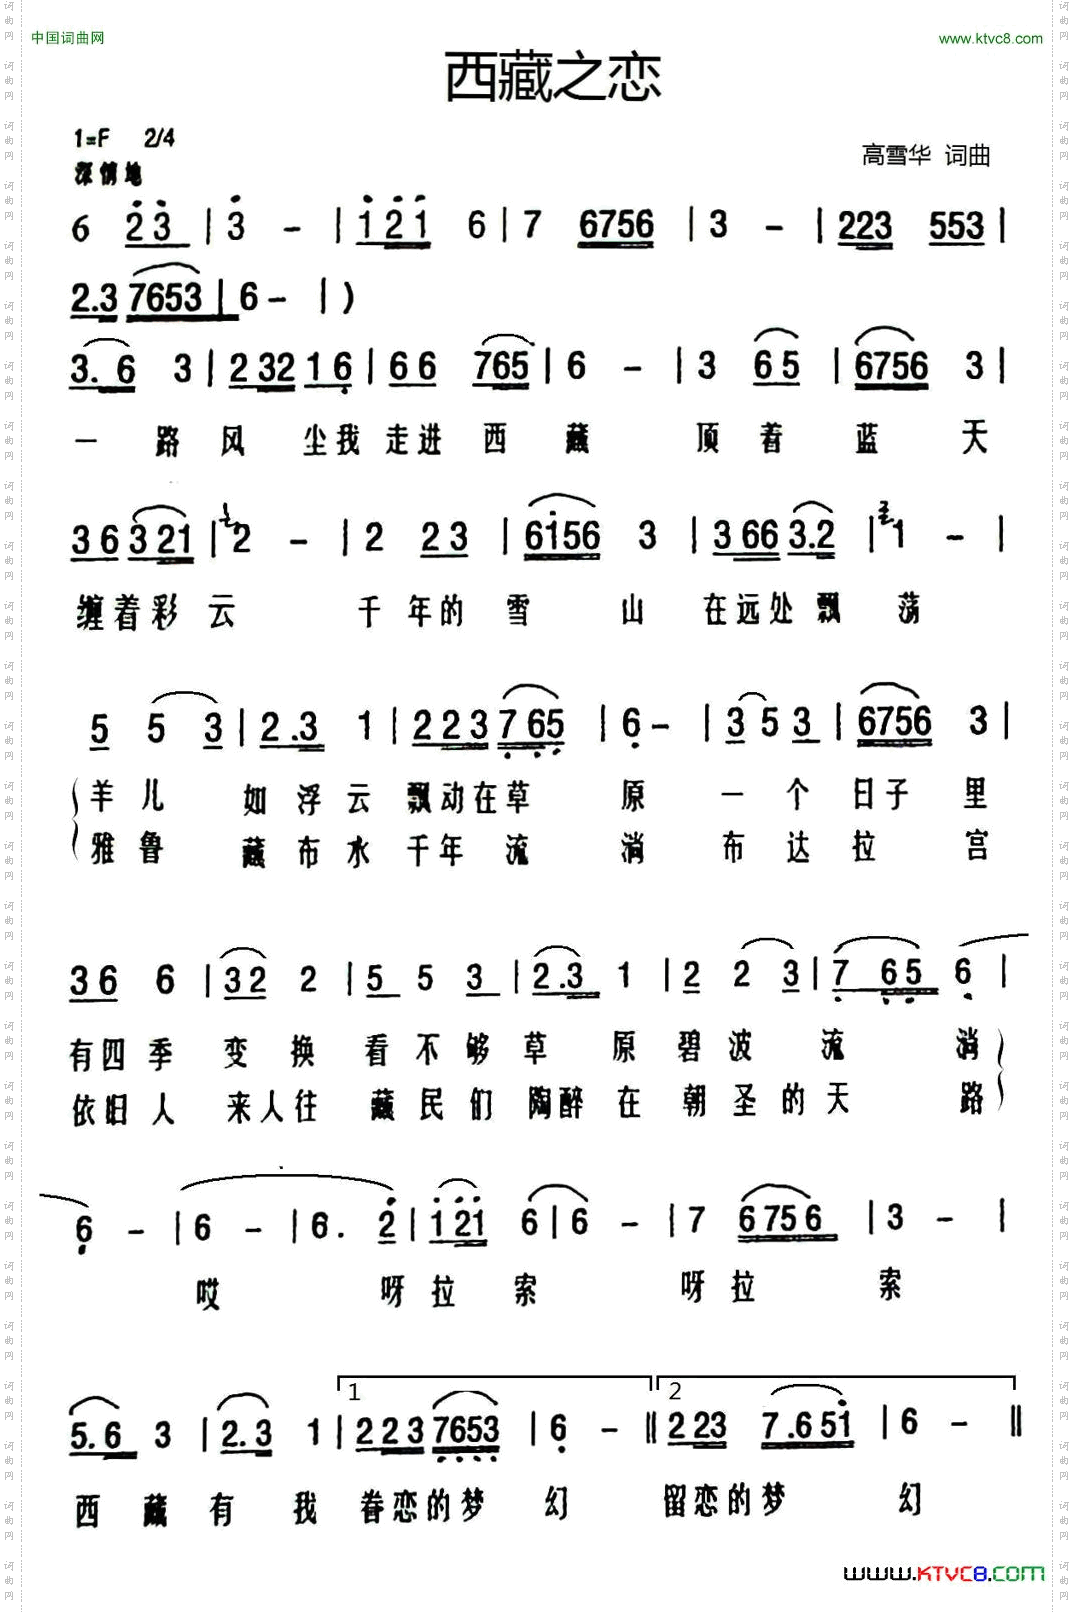 中国词曲网
www.ktvc8.com
西藏之恋
1=F 2/4
高雪华 词曲
深情地
6 2̇3̇ | 3̇ - | 1̇2̇1̇ 6 | 7 6756 | 3 - | 223 553 |
2.3 7653 | 6 - | )
3. 6 3 | 232 16 | 66 765 | 6 - | 3 65 | 6756 3 |
一 路 风 尘 我 走 进 西 藏 顶 着 蓝 天
36 321 | 2 - | 2 23 | 61̇56 3 | 366 3.2 | 1 - |
缠 着 彩 云 千 年 的 雪 山 在 远 处 飘 荡
5 5 3 | 2.3 1 | 223 765 | 6 - | 3 5 3 | 6756 3 |
羊 儿 如 浮 云 飘 动 在 草 原 一 个 日 子 里
雅 鲁 藏 布 水 千 年 流 淌 布 达 拉 宫
36 6 | 32 2 | 5 5 3 | 2.3 1 | 2 2 3 | 7 65 6 |
有 四 季 变 换 看 不 够 草 原 碧 波 流 淌
依 旧 人 来 人 往 藏 民 们 陶 醉 在 朝 圣 的 天 路
6 - | 6 - | 6. 2̇ | 1̇2̇1̇ 6 | 6 - | 7 6756 | 3 - |
哎 呀 拉 索 呀 拉 索
1 2
5.6 3 | 2.3 1 | 223 7653 | 6 - ‖ 223 7.651̇ | 6 - ‖
西 藏 有 我 眷 恋 的 梦 幻 留 恋 的 梦 幻
www.KTVC8.com